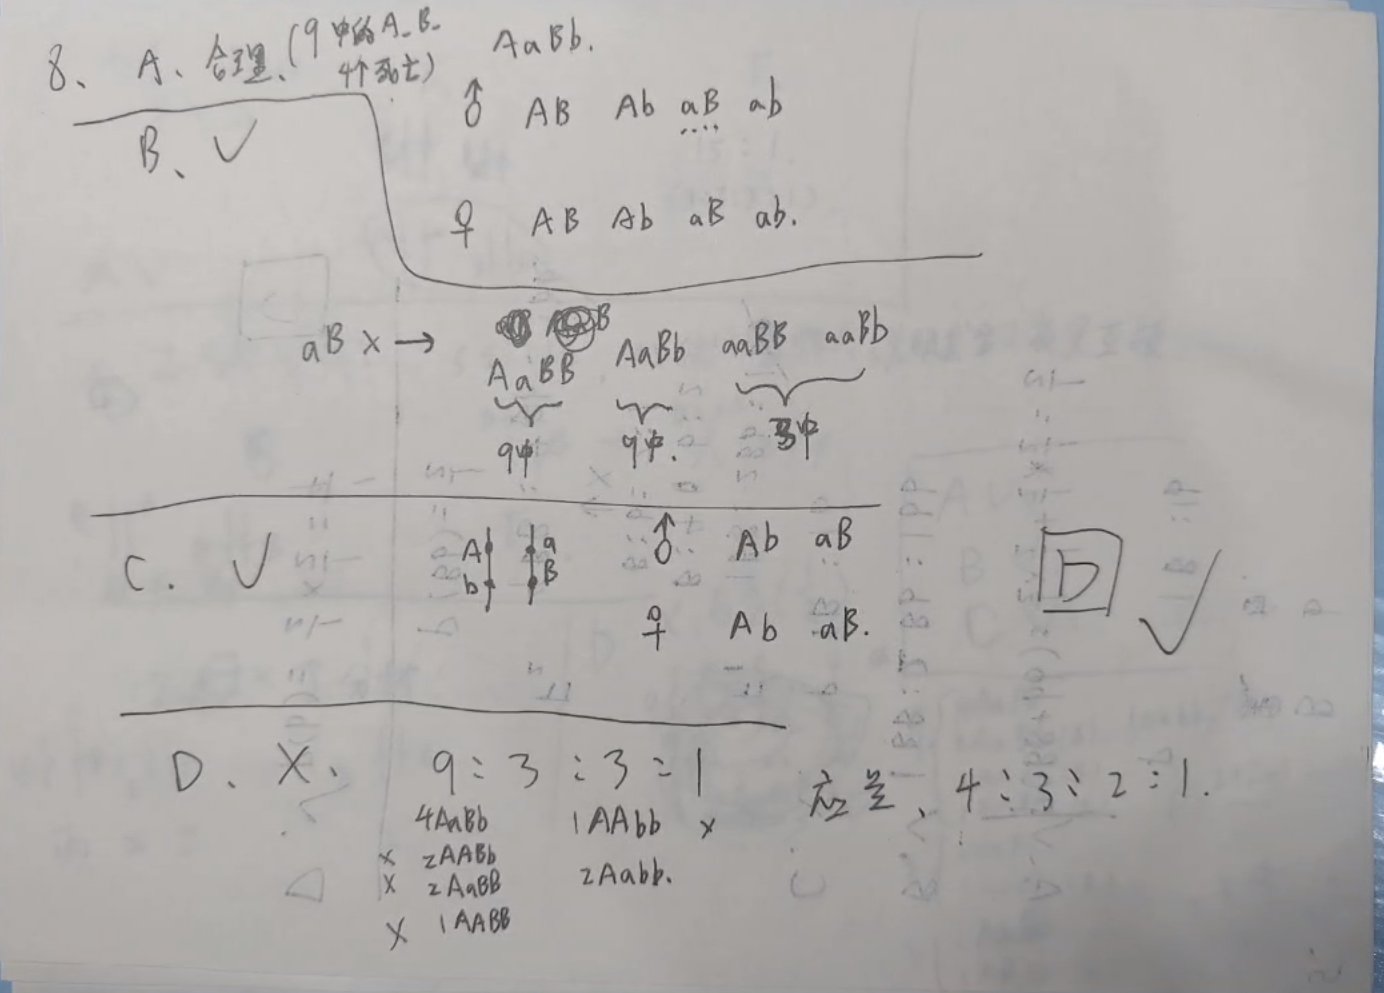 8、 A、合理、(9中的A_B_
4个死亡)
AaBb.
♂ AB Ab aB ab
B、 ✓
♀ AB Ab aB ab.
aB × → AaBB AaBb aaBB aaBb
9中 9中. 3中
C. ✓ A b a B ♂ Ab aB
♀ Ab aB.
D ✓
D. ×. 9:3:3:1 应是、4:3:2:1.
4AaBb 1AAbb ×
× 2AABb
× 2AaBB 2Aabb.
× 1AABB